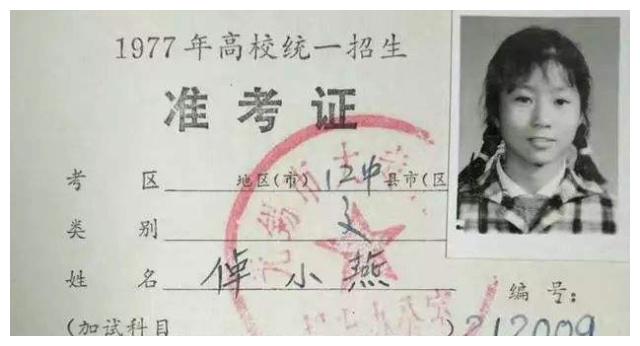 1977年高校统一招生
准考证
考 区 地区(市) 12中 县市(区
类 别 文
姓 名 倬小燕
编号:
(加试科目 ) 212009